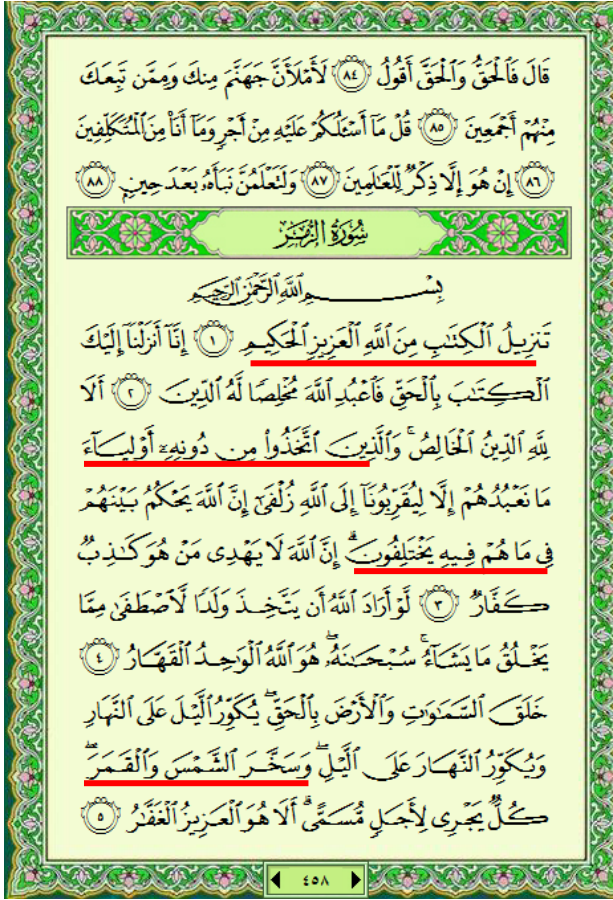 قَالَ فَٱلْحَقُّ وَٱلْحَقَّ أَقُولُ ﴿٨٤﴾ لَأَمْلَأَنَّ جَهَنَّمَ مِنكَ وَمِمَّن تَبِعَكَ
مِنْهُمْ أَجْمَعِينَ ﴿٨٥﴾ قُلْ مَآ أَسْـَٔلُكُمْ عَلَيْهِ مِنْ أَجْرٍ وَمَآ أَنَا۠ مِنَ ٱلْمُتَكَلِّفِينَ
﴿٨٦﴾ إِنْ هُوَ إِلَّا ذِكْرٌ لِّلْعَـٰلَمِينَ ﴿٨٧﴾ وَلَتَعْلَمُنَّ نَبَأَهُۥ بَعْدَ حِينٍۭ ﴿٨٨﴾
سُورَةُ الزُّمَرِ
بِسْمِ ٱللَّهِ ٱلرَّحْمَـٰنِ ٱلرَّحِيمِ
تَنزِيلُ ٱلْكِتَـٰبِ مِنَ ٱللَّهِ ٱلْعَزِيزِ ٱلْحَكِيمِ ﴿١﴾ إِنَّآ أَنزَلْنَآ إِلَيْكَ
ٱلْكِتَـٰبَ بِٱلْحَقِّ فَٱعْبُدِ ٱللَّهَ مُخْلِصًا لَّهُ ٱلدِّينَ ﴿٢﴾ أَلَا
لِلَّهِ ٱلدِّينُ ٱلْخَالِصُ ۚ وَٱلَّذِينَ ٱتَّخَذُوا۟ مِن دُونِهِۦٓ أَوْلِيَآءَ
مَا نَعْبُدُهُمْ إِلَّا لِيُقَرِّبُونَآ إِلَى ٱللَّهِ زُلْفَىٰٓ إِنَّ ٱللَّهَ يَحْكُمُ بَيْنَهُمْ
فِى مَا هُمْ فِيهِ يَخْتَلِفُونَ ۗ إِنَّ ٱللَّهَ لَا يَهْدِى مَنْ هُوَ كَـٰذِبٌ
كَفَّارٌ ﴿٣﴾ لَّوْ أَرَادَ ٱللَّهُ أَن يَتَّخِذَ وَلَدًا لَّٱصْطَفَىٰ مِمَّا
يَخْلُقُ مَا يَشَآءُ ۚ سُبْحَـٰنَهُۥ ۖ هُوَ ٱللَّهُ ٱلْوَٰحِدُ ٱلْقَهَّارُ ﴿٤﴾
خَلَقَ ٱلسَّمَـٰوَٰتِ وَٱلْأَرْضَ بِٱلْحَقِّ ۖ يُكَوِّرُ ٱلَّيْلَ عَلَى ٱلنَّهَارِ
وَيُكَوِّرُ ٱلنَّهَارَ عَلَى ٱلَّيْلِ ۖ وَسَخَّرَ ٱلشَّمْسَ وَٱلْقَمَرَ ۖ
كُلٌّ يَجْرِى لِأَجَلٍ مُّسَمًّى ۗ أَلَا هُوَ ٱلْعَزِيزُ ٱلْغَفَّـٰرُ ﴿٥﴾
٤٥٨